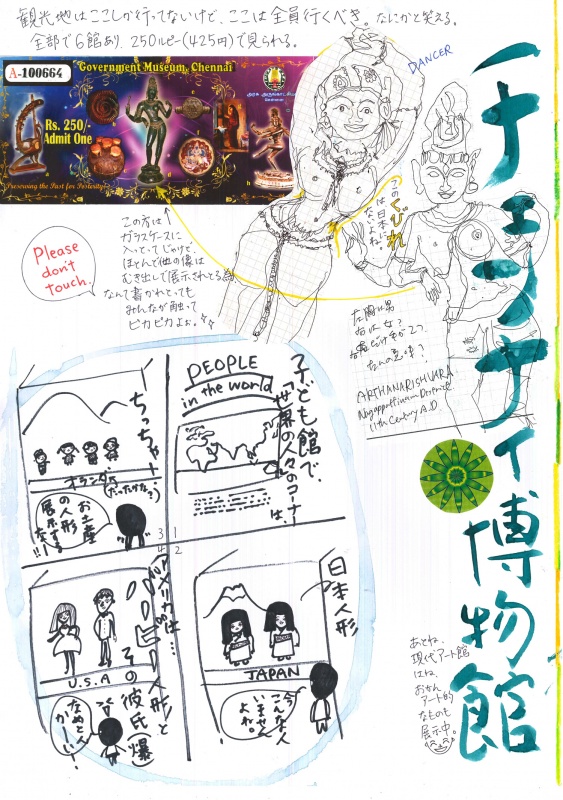 観光地はここしか行ってないけど、ここは全員行くべき。なにかと笑える。
全部で6館あり、250ルピー(425円)で見られる。
チェンナイ博物館
A-100664
Government Museum, Chennai
Rs. 250/-
Admit One
Preserving the Past for Posterity
அரசு அருங்காட்சியகம்
சென்னை
DANCER
この
くびれ
は日本に
ないよね。
Please
don't
touch.
この方は
ガラスケースに
入っとってじゃけど、
ほとんど他の像は
むき出しで展示されとる為
なんて書かれとっても
みんなが触って
ピカピカよぉ。
左胸は男
右は女?
右腕だけ手が2つ
なんの意味?
ARTHANARISHVARA
Nagappattinam District
11th Century A.D
子ども館で、
「世界の人々のコーナー」
は、
PEOPLE
in the world
1
2
日本人形
JAPAN
今
こんな人
いません
よね。
3
ちっちゃー
オランダ
(だったけな?)
お土産
の人形
展示する
なー!!
4
アメリカは…
人形と
その彼氏(爆
U.S.A
なめとん
かーい!
あとね、
現代アート館
はね、
おせん
アート的
なものも
展示中。